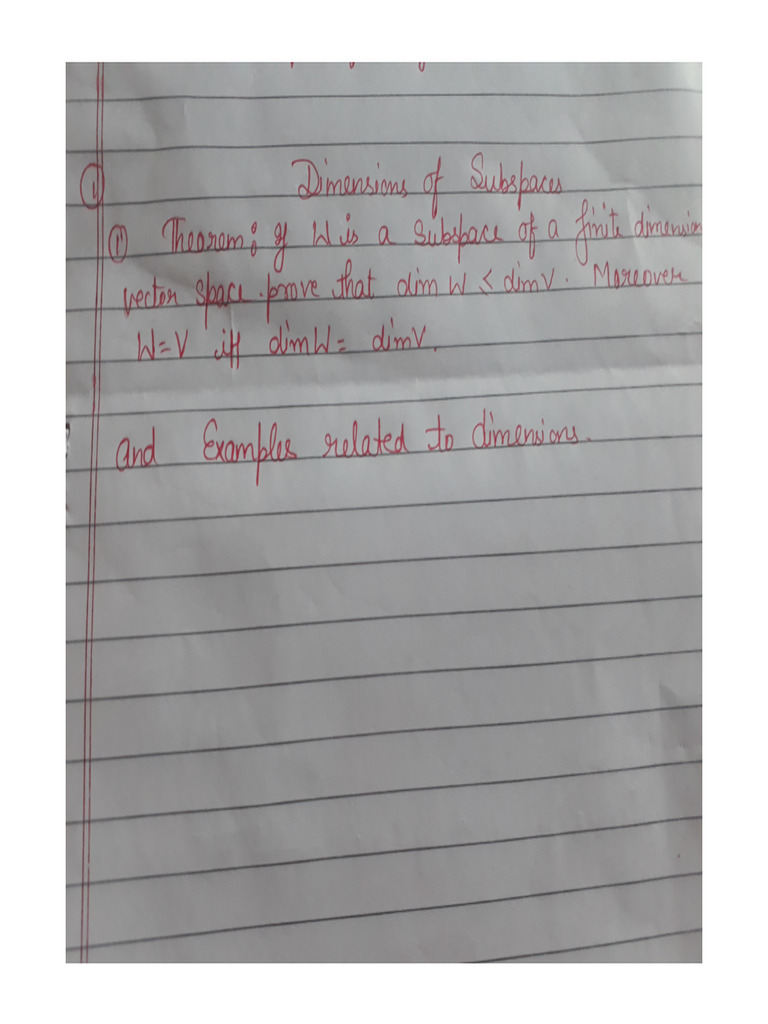 ① Dimensions of Subspaces
① Theorem: If W is a subspace of a finite dimension
vector space. prove that dim W ≤ dim V. Moreover
W=V iff dim W = dim V.
and Examples related to dimensions.